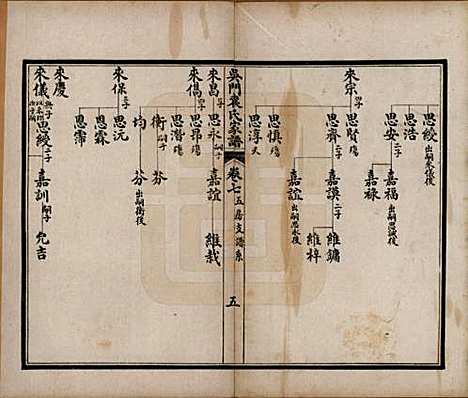 思綬 出嗣來儀後
思浩
思安 二子
嘉福 出嗣思誠後
嘉祿
來宗 四子
思賢 殤
思齊 二子
嘉謨 二子
維鏞
維梓
嘉誼 出嗣思永後
思慎 殤
思淳 夭
吳門袁氏家譜
卷七 五房支譜系
五
來昌 嗣子
思永 嗣子
嘉誼
維栽
來儁 四子
思昴 殤
思潛 殤
衡 嗣子
芬
均
芬 出嗣衡後
來保 三子
思沅
思霖
思霈
來慶
來儀 無子
思綬 二子
嘉訓 嗣子
允吉